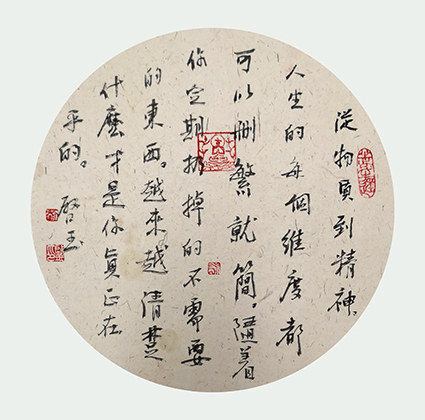 從物質到精神。
人生的每個維度都
可以刪繁就簡。隨着
你定期扔掉的不需要
的東西。越來越清楚
什麼才是你真正在
乎的。